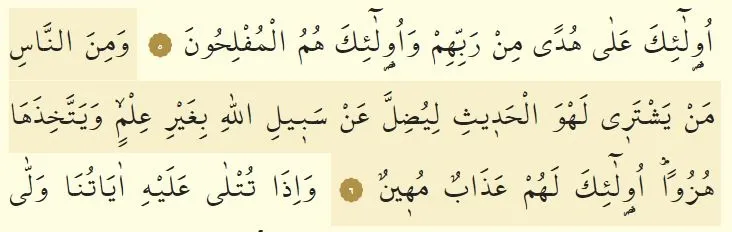 اُو۬لٰٓئِكَ عَلٰى هُدًى مِنْ رَبِّهِمْ وَاُو۬لٰٓئِكَ هُمُ الْمُفْلِحُونَ ﴿٥﴾ وَمِنَ النَّاسِ
مَنْ يَشْتَرٖي لَهْوَ الْحَدٖيثِ لِيُضِلَّ عَنْ سَبٖيلِ اللّٰهِ بِغَيْرِ عِلْمٍۗ وَيَتَّخِذَهَا
هُزُواًؕ اُو۬لٰٓئِكَ لَهُمْ عَذَابٌ مُهٖينٌ ﴿٦﴾ وَاِذَا تُتْلٰى عَلَيْهِ اٰيَاتُنَا وَلّٰى